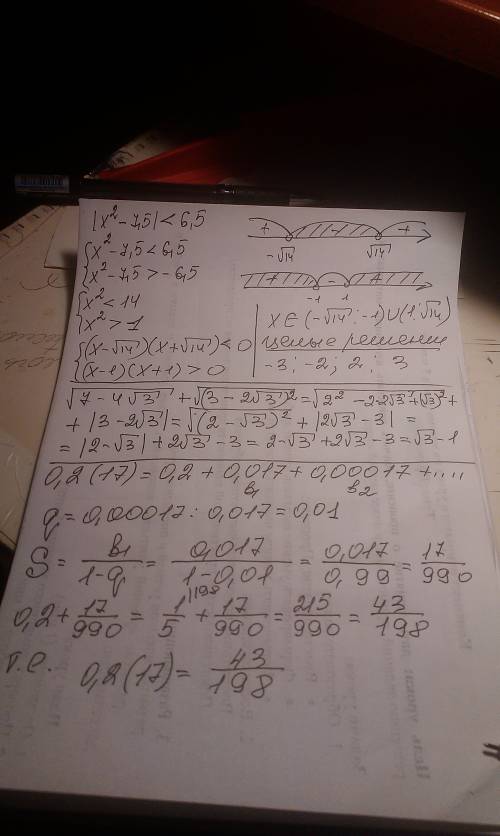 |x² - 7,5| < 6,5
{x² - 7,5 < 6,5
{x² - 7,5 > -6,5
{x² < 14
{x² > 1
{(x-√14)(x+√14) < 0
{(x-1)(x+1) > 0
+ - +
-√14 √14
+ - +
-1 1
x ∈ (-√14; -1) ∪ (1; √14)
целые решения
-3; -2; 2; 3
√(7 - 4√3) + √((3 - 2√3)²) = √(2² - 2·2√3 + (√3)²) +
+ |3 - 2√3| = √((2 - √3)²) + |2√3 - 3| =
= |2 - √3| + 2√3 - 3 = 2 - √3 + 2√3 - 3 = √3 - 1
0,2(17) = 0,2 + 0,017 + 0,00017 + ....
b₁ b₂
q = 0,00017 : 0,017 = 0,01
S = b₁/(1-q) = 0,017/(1-0,01) = 0,017/0,99 = 17/990
0,2 + 17/990 = 1/5 |198 + 17/990 = 215/990 = 43/198
т.е. 0,2(17) = 43/198